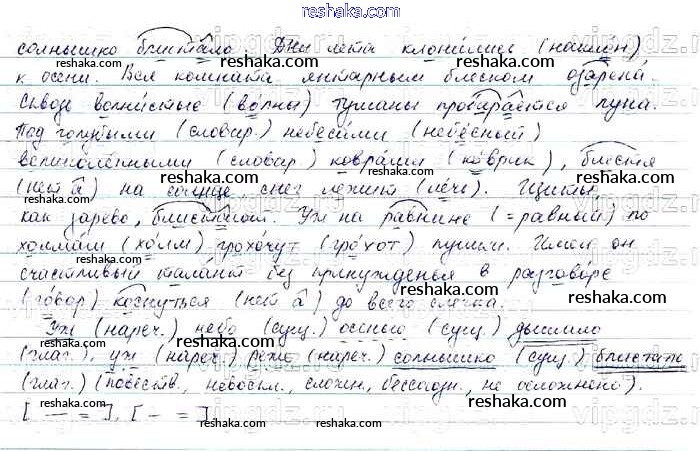 reshaka.com
солнышко блистало. Дни лета клонились (наклон)
к осени. Вся комната янтарным блеском озарена.
Сквозь волнистые (волны) туманы пробирается луна.
Под голубыми (словар.) небесами (небесный)
великолепными (словар) коврами (коврик), блестя
(нет а) на солнце, снег лежит (лечь). Щиты,
как зарево, блистали. Уж на равнине (=равный) по
холмам (холм) грохочут (грохот) пушки. Имел он
счастливый талант без принужденья в разговоре
(говор) коснуться (нет а) до всего слегка.
Уж (нареч.) небо (сущ.) осенью (сущ.) дышало
(глаг.), уж (нареч.) реже (нареч.) солнышко (сущ.) блистало
(глаг.) (повеств., невоскл., сложн., бессоюзн., не осложнено).
[ — = ], [ — = ]
reshaka.com